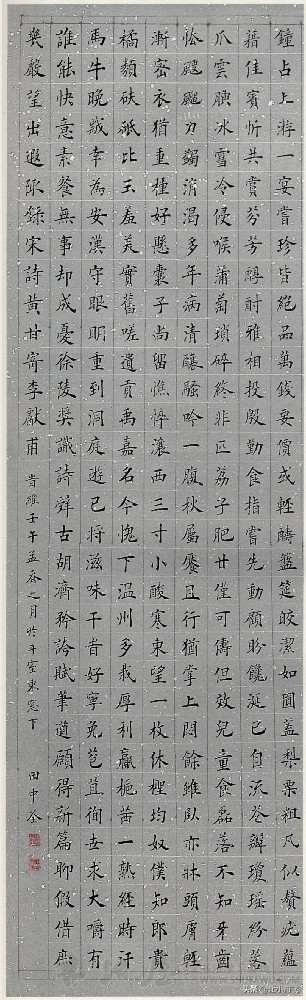 鐘占上游一宴嘗珍皆絕品萬錢妥價或輕疇盤筵皎潔如圓蓋梨栗粗凡似贅疣蘊
藉佳賓忻共嘗芬芳醇酎雅相投殷勤食指嘗先動顧盼饞涎已自流苍瓣瓊瑤紛落
爪雲腴冰雪冷侵喉蒲萄瑣碎終非匹荔子肥甘僅可儔但效兒童食磊落不知牙齒
忪颼颼力蠲消渴多年病清釀騷吟一腹秋屬饜且行猶掌上閟餘雖臥亦牀頭膚輕
漸密衣猶重種好懸囊子尚留憔悴瀼西三寸小酸寒東望一枚休樫均奴僕知郎貴
橘類砆砥比玉羞美實舊嗟遺貢禹嘉名今愧下溫州多栽厚利贏梔茜一熟經時汗
馬牛晚歲幸為安漢守眼明重到洞庭遊已將滋味干旨好寧免苞苴徇世求大嚼有
誰能快意素餐無事却成憂徐陵獎識詩聲古胡濟矜誇賦筆遒顧得新篇聊假借庶
幾嚴望出遐陬錄宋詩黃甘寄李獻甫 昔維壬午孟春之月於斗室東窗下 田中